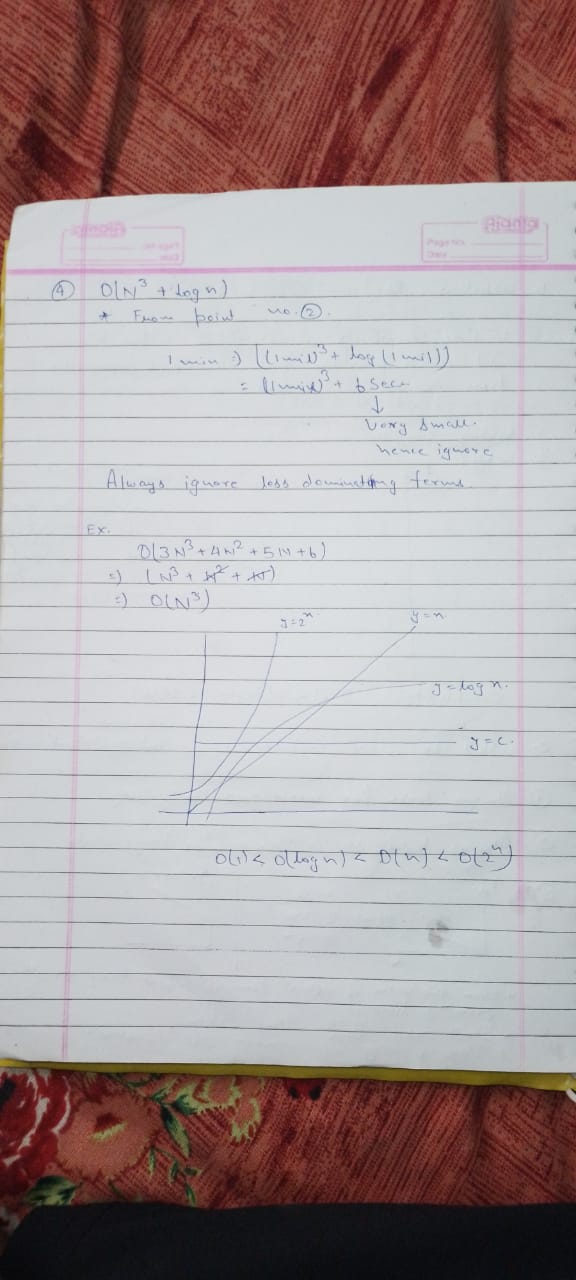 ④ O(N³ + log n)
* From point no. ②.
1 min ⇒ ((1mil)³ + log (1mil))
= (1mil)³ + 6 Sec
↓
Very Small.
hence ignore
Always ignore less dominating terms.
Ex.
O(3N³ + 4N² + 5N + 6)
⇒ (N³ + N² + N)
⇒ O(N³)
y=2ⁿ
y=n.
y=log n.
y=c.
O(1) < O(log n) < O(n) < O(2ⁿ)